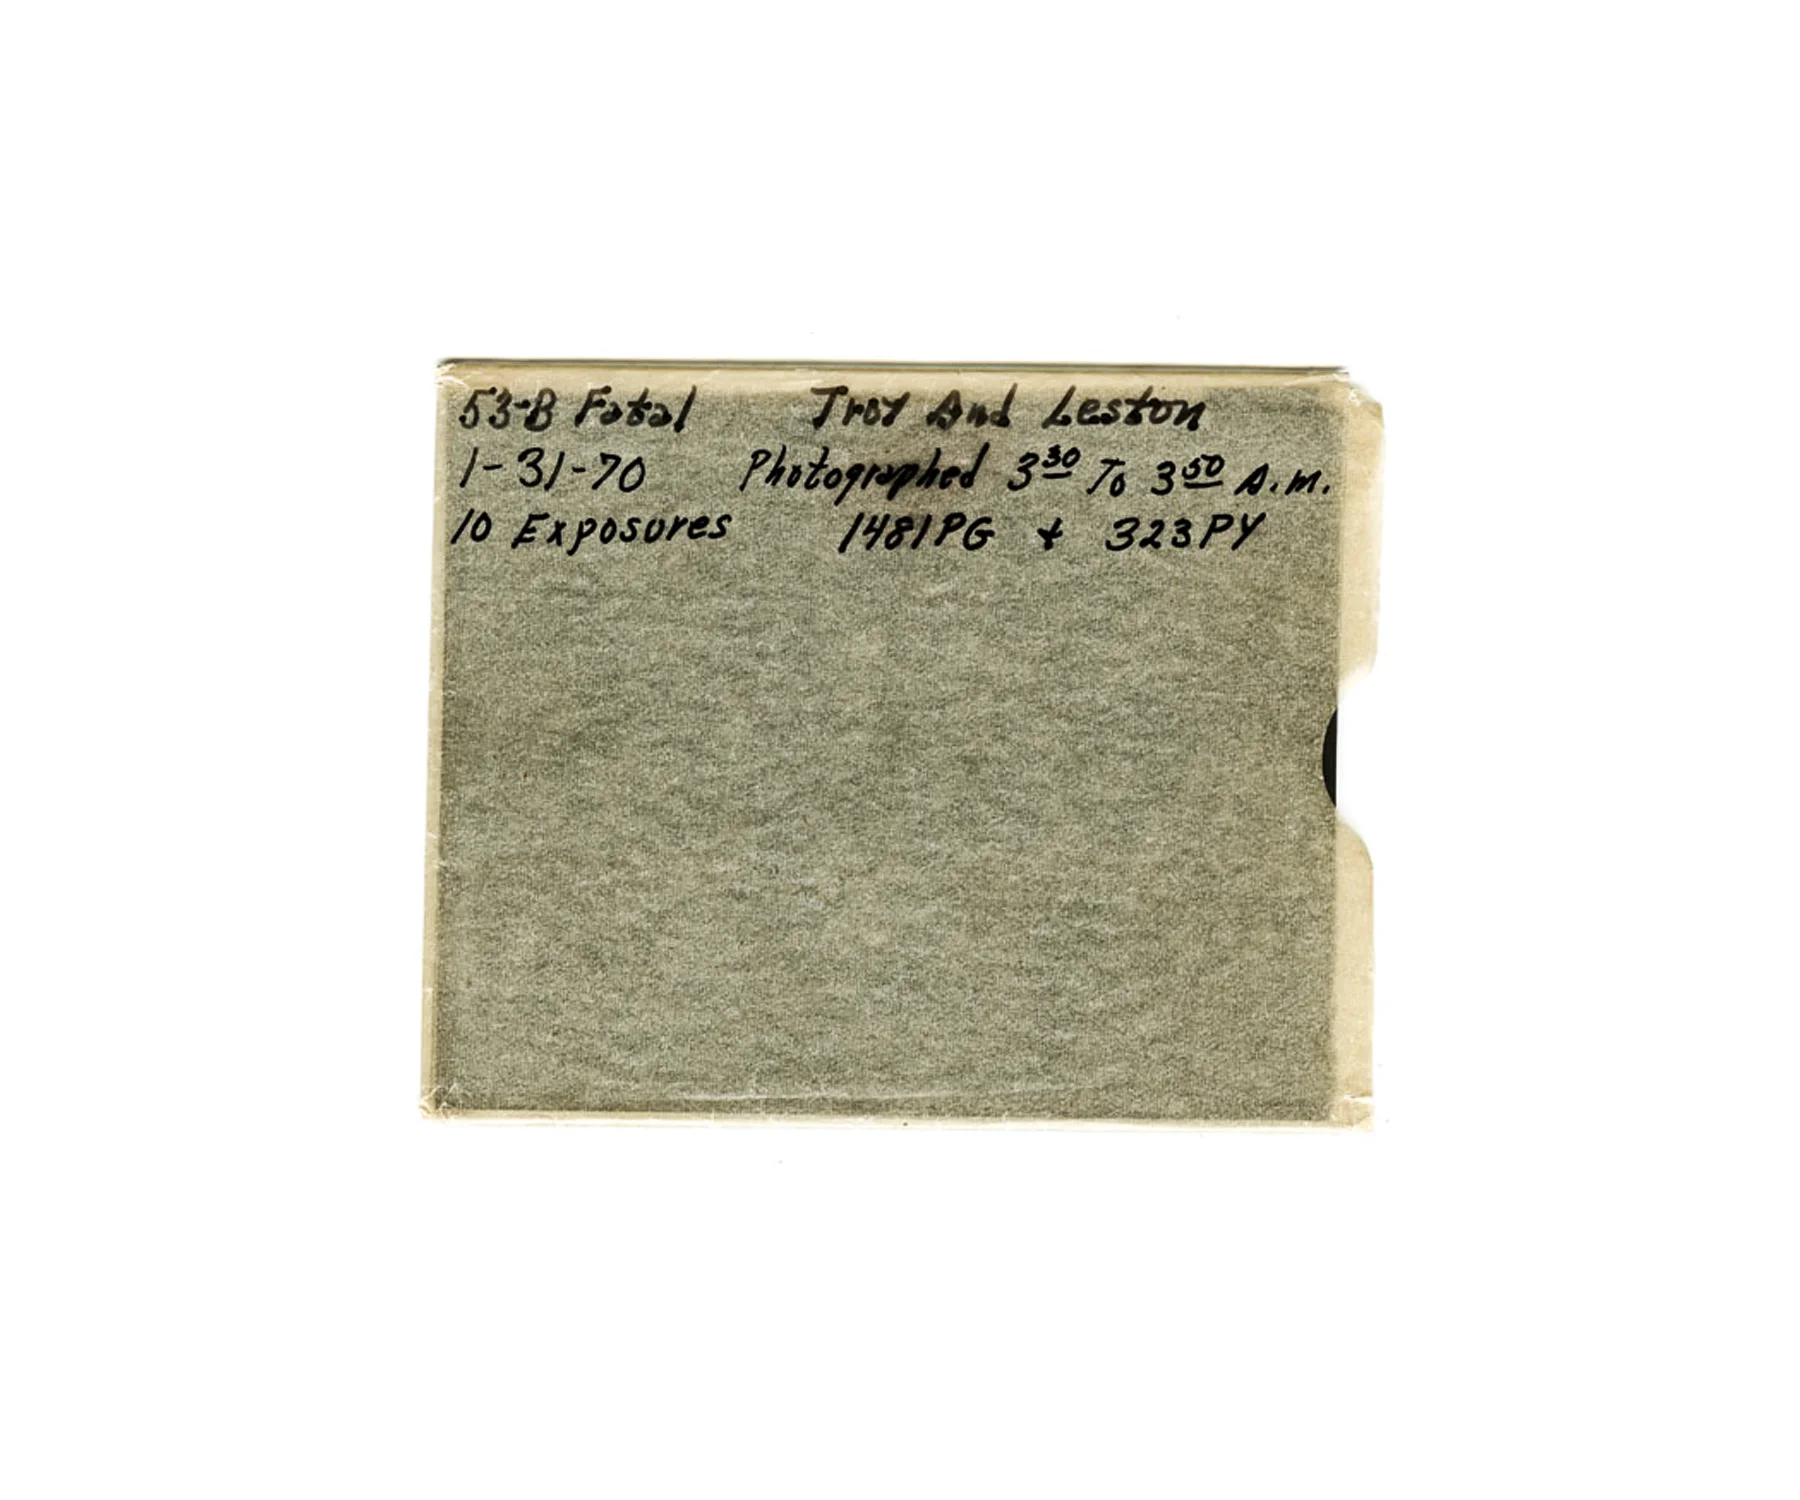 53-B Fatal Troy And Leston
1-31-70 Photographed 3 30 To 3 50 A.M.
10 Exposures 1481PG & 323PY